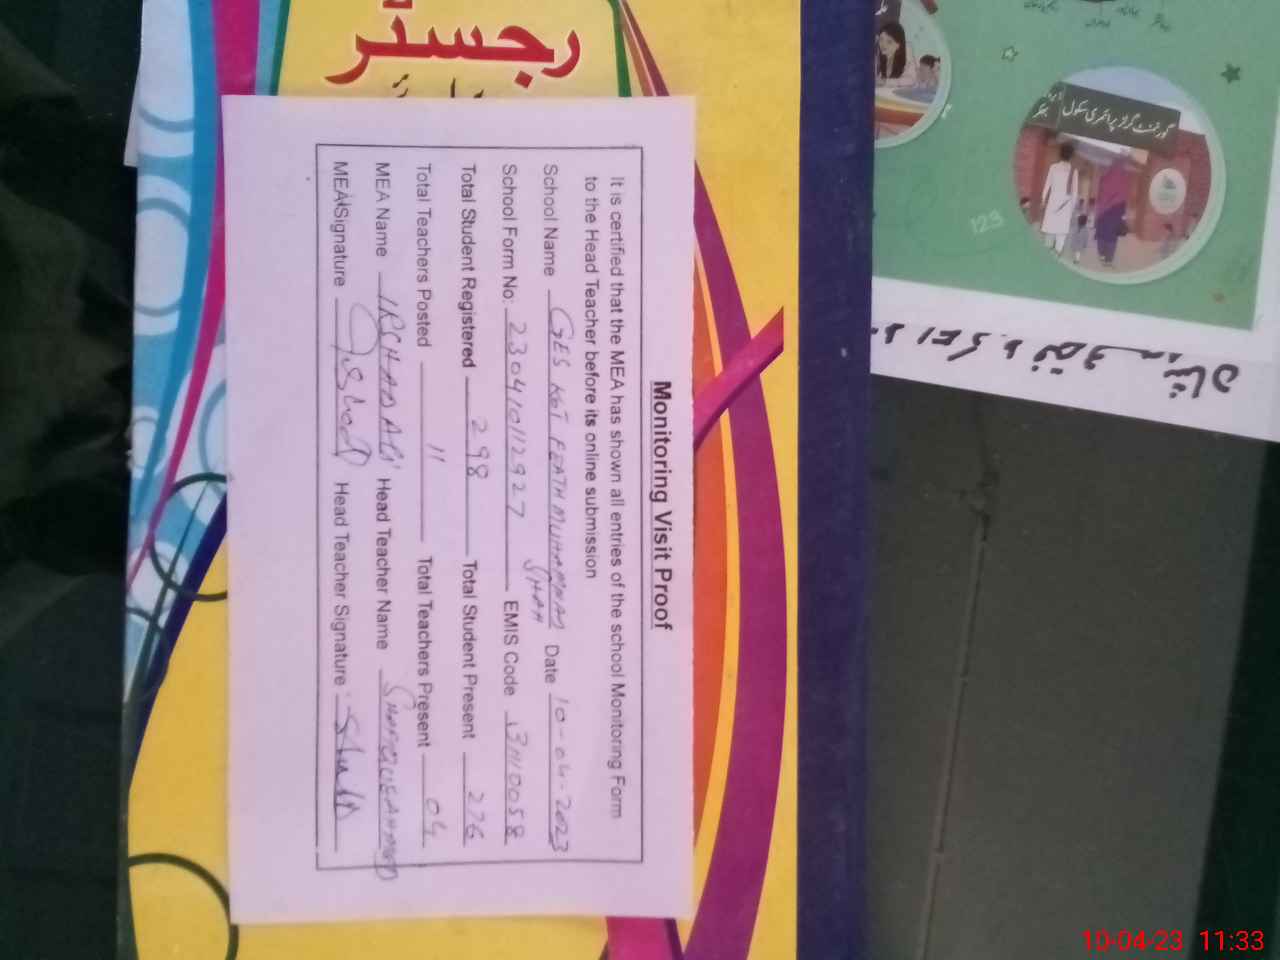 رجسٹر
گورنمنٹ گرلز پرائمری سکول
123
Monitoring Visit Proof
It is certified that the MEA has shown all entries of the school Monitoring Form
to the Head Teacher before its online submission
School Name GES KOT FEATH MUHAMMAD SHAH Date 10-04-2023
School Form No: 230410112927 EMIS Code 31110058
Total Student Registered 298 Total Student Present 276
Total Teachers Posted 11 Total Teachers Present 04
MEA Name IRSHAD ALI Head Teacher Name SHAFIQUE AHMED
MEA Signature Head Teacher Signature
10-04-23 11:33